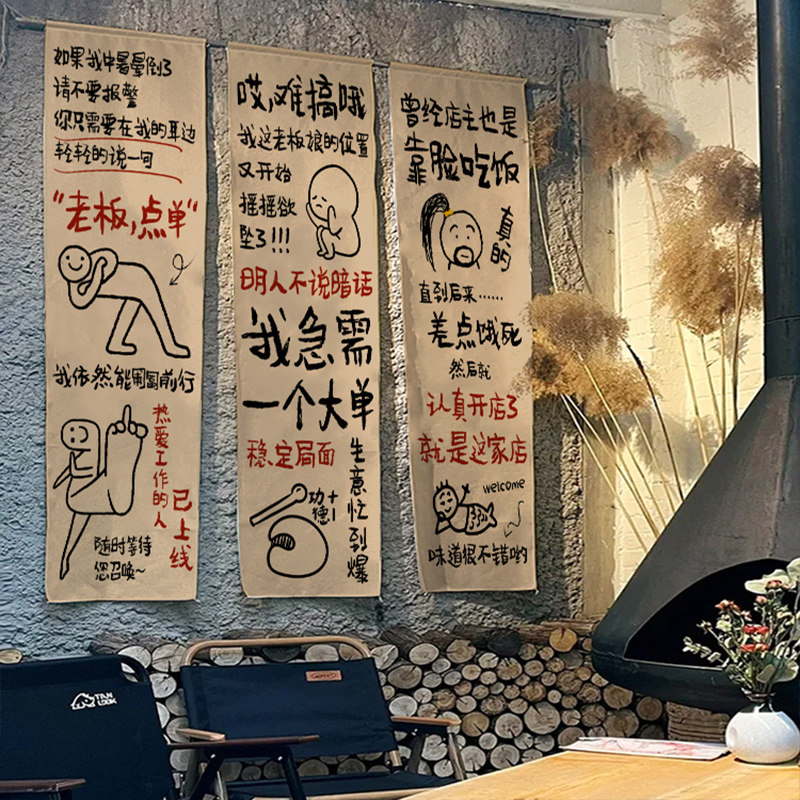 如果我中暑晕倒了
请不要报警
你只需要在我的耳边
轻轻的说一句
"老板,点单"
我依然能匍匐前行
热爱工作的人
已上线
随时等待
您召唤~
哎,难搞哦
我这老板娘的位置
又开始
摇摇欲
坠了!!!
明人不说暗话
我急需
一个大单
稳定局面
生意忙到爆
功德+1
曾经店主也是
靠脸吃饭
真的
直到后来......
差点饿死
然后就
认真开店了
就是这家店
welcome
味道很不错哟
TAN
LOOK